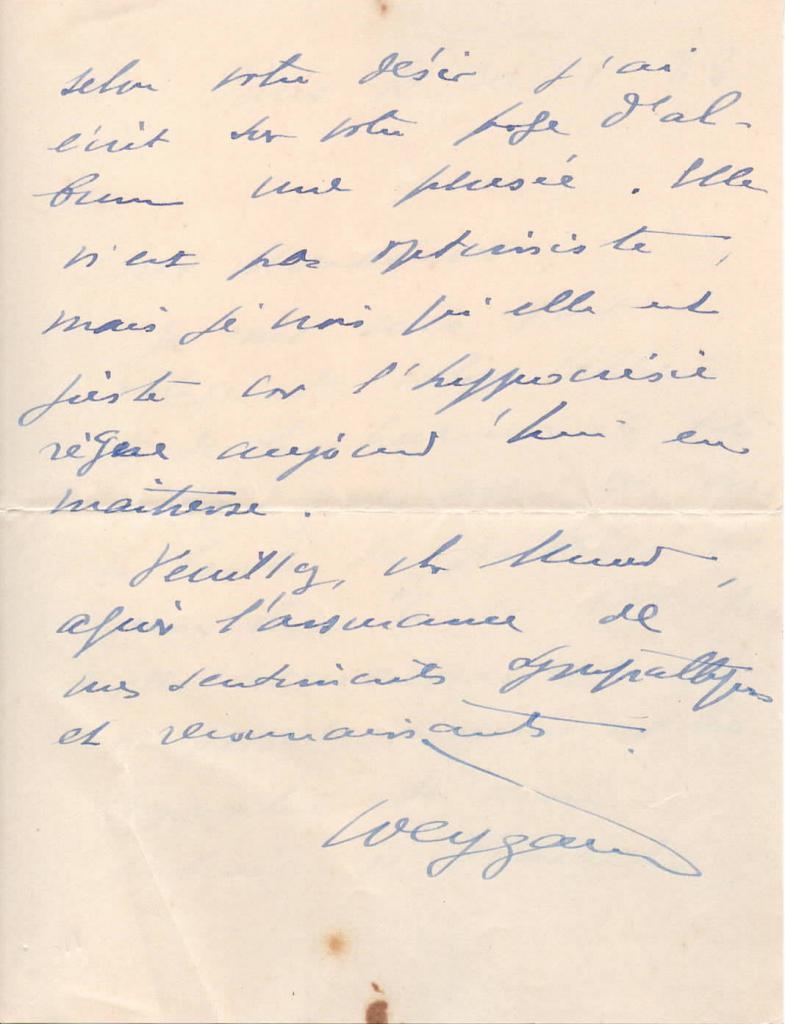 selon votre désir j'ai
écrit sur votre page d'al-
bum une pensée. Elle
n'est pas optimiste,
mais je crois qu'elle est
juste car l'hypocrisie
règne aujourd'hui en
maîtresse.
Veuillez, cher Monsieur,
agréer l'assurance de
mes sentiments sympathiques
et reconnaissants.
Weygand